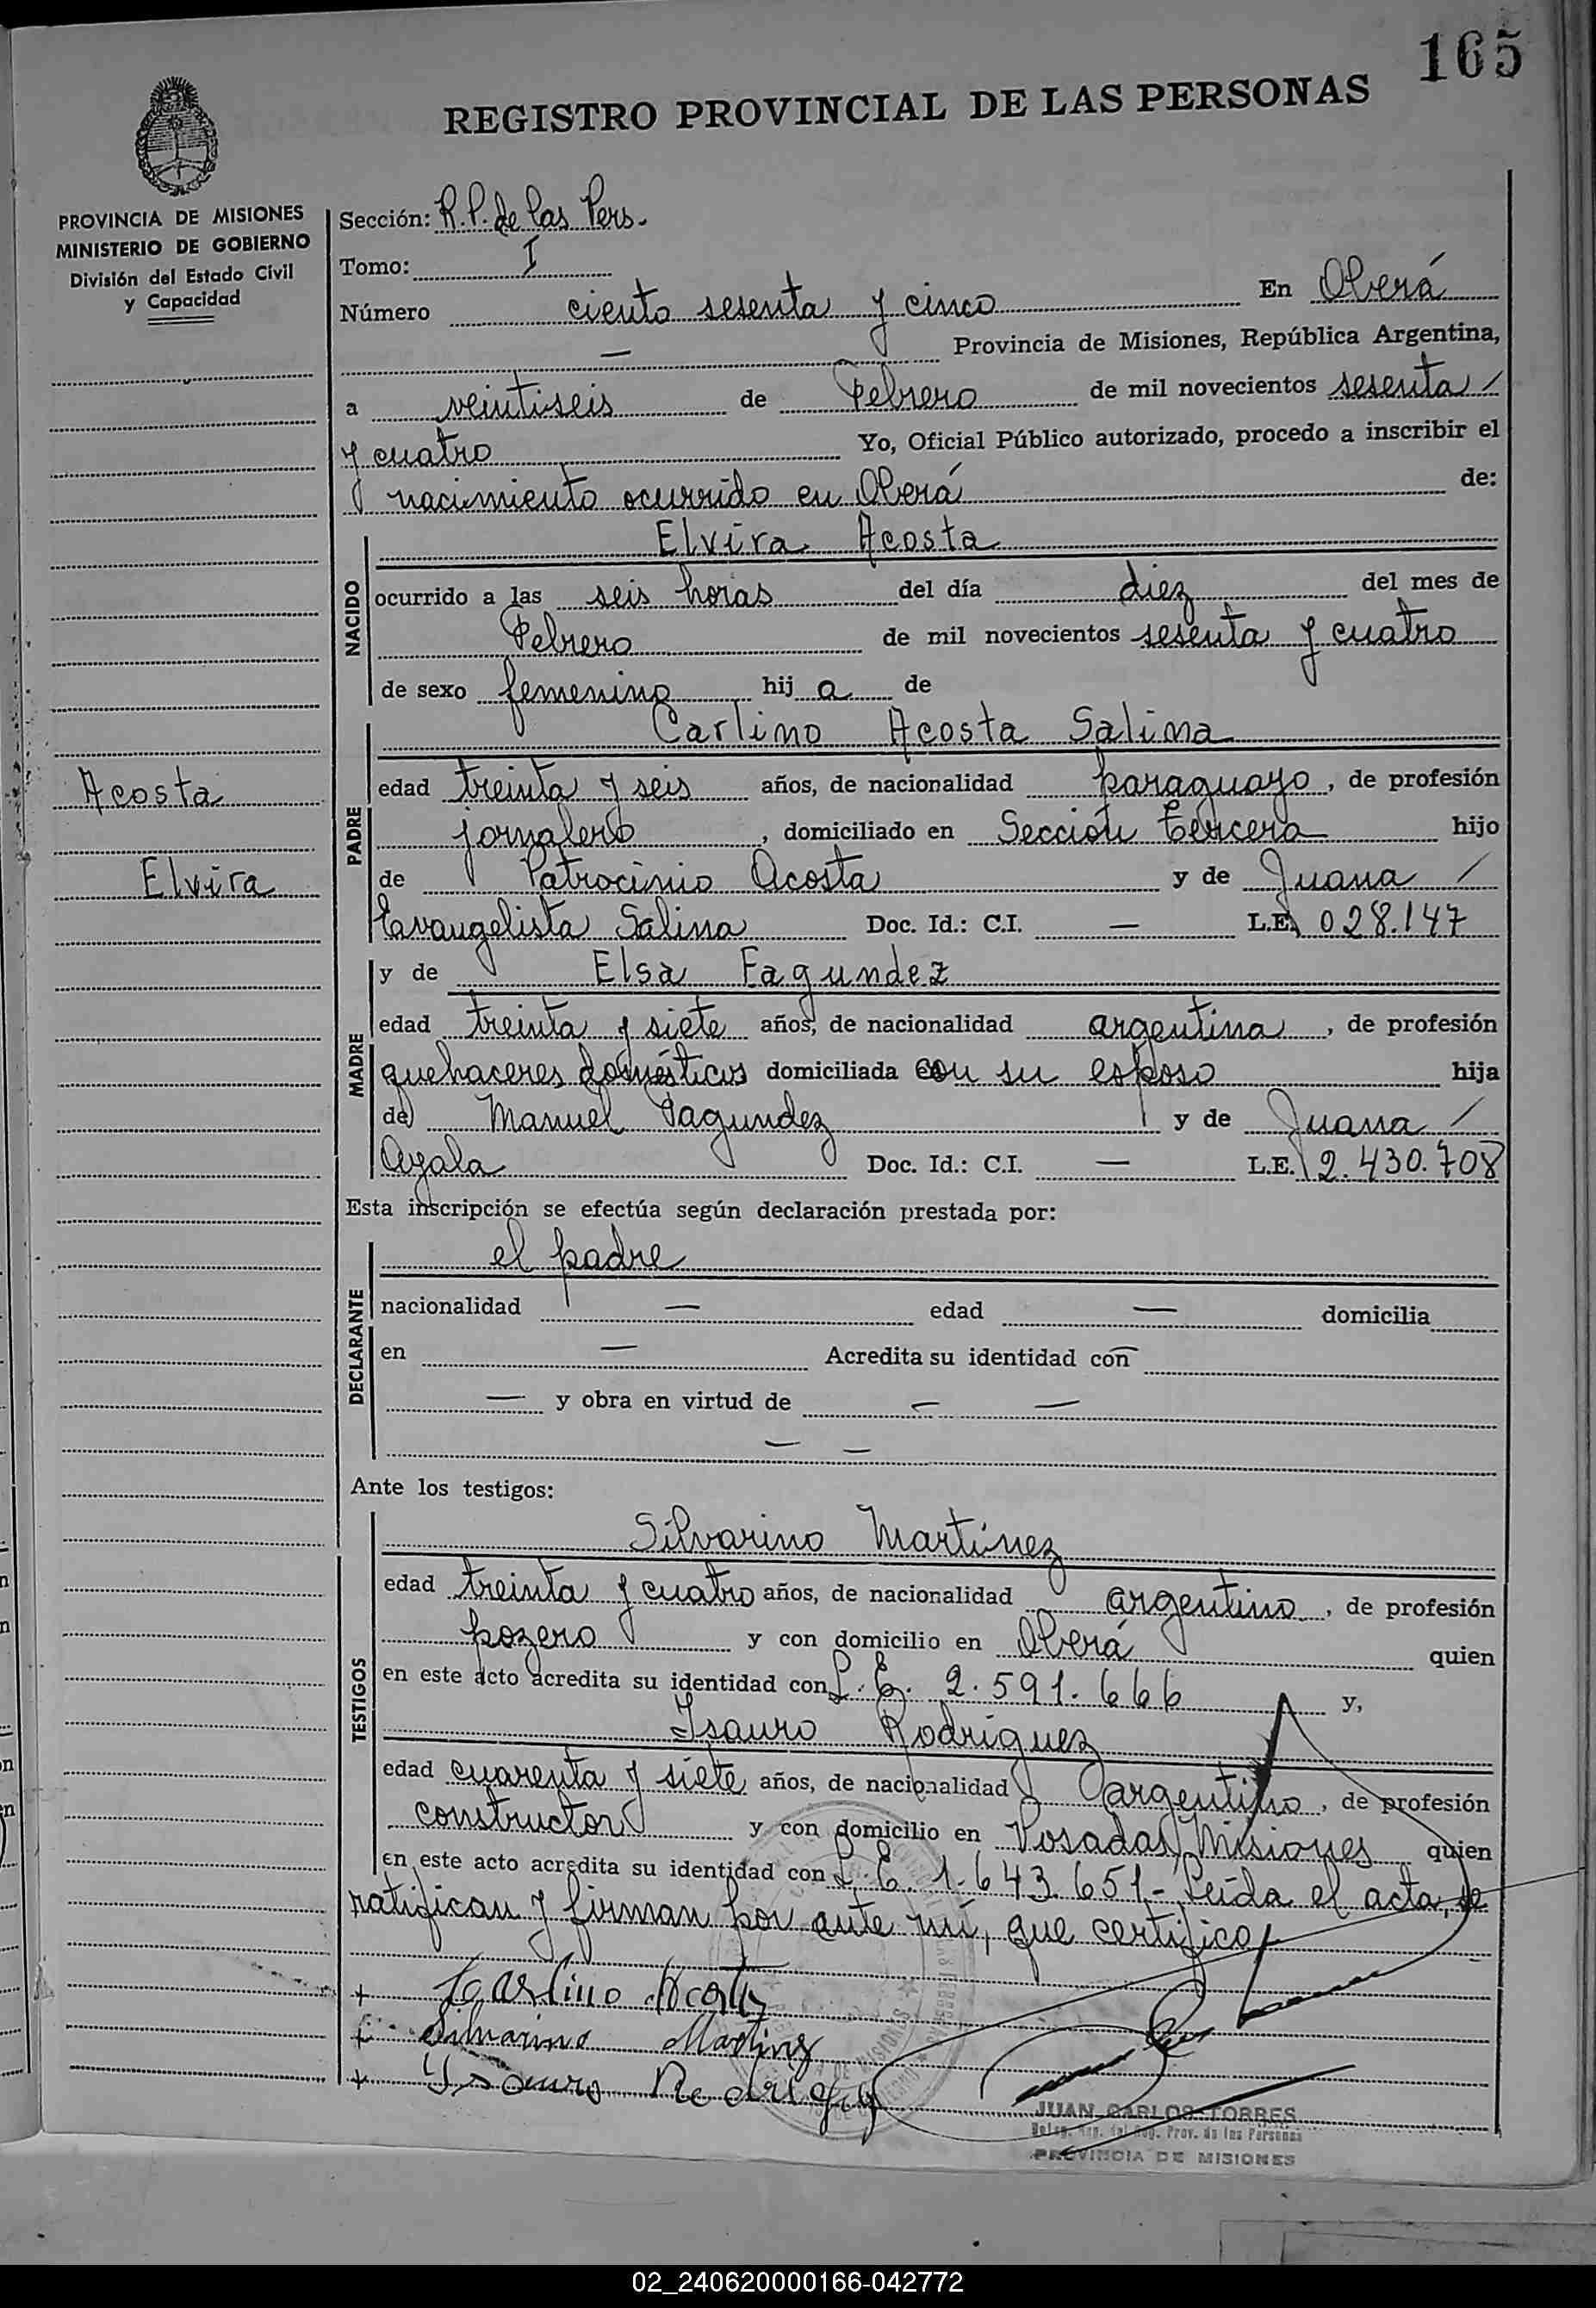 165
REGISTRO PROVINCIAL DE LAS PERSONAS
PROVINCIA DE MISIONES
MINISTERIO DE GOBIERNO
División del Estado Civil
y Capacidad
Acosta
Elvira
Sección: R.P. de las Pers.
Tomo: I
Número ciento sesenta y cinco En Oberá
— Provincia de Misiones, República Argentina,
a veintiseis de Febrero de mil novecientos sesenta /
y cuatro Yo, Oficial Público autorizado, procedo a inscribir el
nacimiento ocurrido en Oberá de:
NACIDO
Elvira Acosta
ocurrido a las seis horas del día diez del mes de
Febrero de mil novecientos sesenta y cuatro
de sexo femenino hij a de
PADRE
Carlino Acosta Salina
edad treinta y seis años, de nacionalidad paraguayo, de profesión
jornalero, domiciliado en Sección Tercera hijo
de Patrocinio Acosta y de Juana /
Evangelista Salina Doc. Id.: C.I. — L.E. 028.147
MADRE
y de Elsa Fagundez
edad treinta y siete años, de nacionalidad argentina, de profesión
quehaceres domésticos domiciliada con su esposo hija
de Manuel Fagundez y de Juana /
Ayala Doc. Id.: C.I. — L.E. 2.430.708
Esta inscripción se efectúa según declaración prestada por:
DECLARANTE
el padre
nacionalidad — edad — domicilia
en — Acredita su identidad con —
— y obra en virtud de — —
— —
Ante los testigos:
TESTIGOS
Silvarino Martinez
edad treinta y cuatro años, de nacionalidad argentino, de profesión
pozero y con domicilio en Oberá quien
en este acto acredita su identidad con L.E. 2.591.666 y,
Isauro Rodriguez
edad cuarenta y siete años, de nacionalidad argentino, de profesión
constructor y con domicilio en Posadas, Misiones quien
en este acto acredita su identidad con L.E. 1.643.651.- Leída el acta, se
ratifican y firman por ante mí, que certifico
+ Carlino Acosta
+ Silvarino Martinez
+ Isauro Rodriguez
JUAN CARLOS TORRES
Reg. Prov. de las Personas
PROVINCIA DE MISIONES
02_240620000166-042772